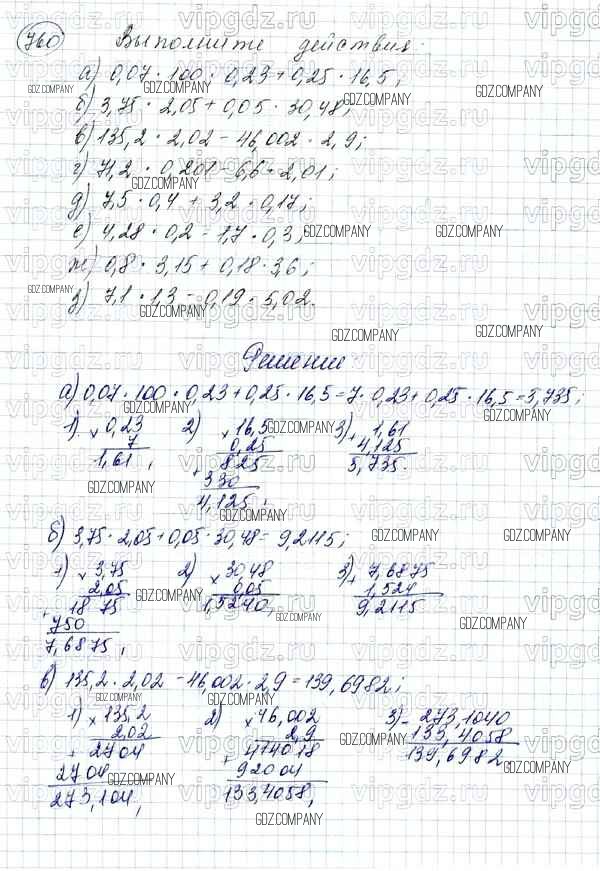 760 Выполните действия:
а) 0,07 · 100 · 0,23 + 0,25 · 16,5;
б) 3,75 · 2,05 + 0,05 · 30,48;
в) 135,2 · 2,02 - 46,002 · 2,9;
г) 71,2 · 0,201 - 6,6 · 2,01;
д) 7,5 · 0,4 + 3,2 · 0,17;
е) 4,28 · 0,2 - 1,7 · 0,3;
ж) 0,8 · 3,15 + 0,18 · 3,6;
з) 7,1 · 1,3 - 0,19 · 5,02.
Решение:
а) 0,07 · 100 · 0,23 + 0,25 · 16,5 = 7 · 0,23 + 0,25 · 16,5 = 5,735;
1) × 0,23 2) × 16,5 3) + 1,61
7 0,25 4,125
1,61, 825 5,735.
+ 330
4,125;
б) 3,75 · 2,05 + 0,05 · 30,48 = 9,2115;
1) × 3,75 2) × 30,48 3) + 7,6875
2,05 0,05 1,524
+ 1875 1,5240, 9,2115
750
7,6875,
в) 135,2 · 2,02 - 46,002 · 2,9 = 139,6982;
1) × 135,2 2) × 46,002 3) - 273,1040
2,02 2,9 133,4058
+ 2704 + 414018 139,6982
2704 92004
273,104, 133,4058,
vipgdz.ru
GDZ.COMPANY